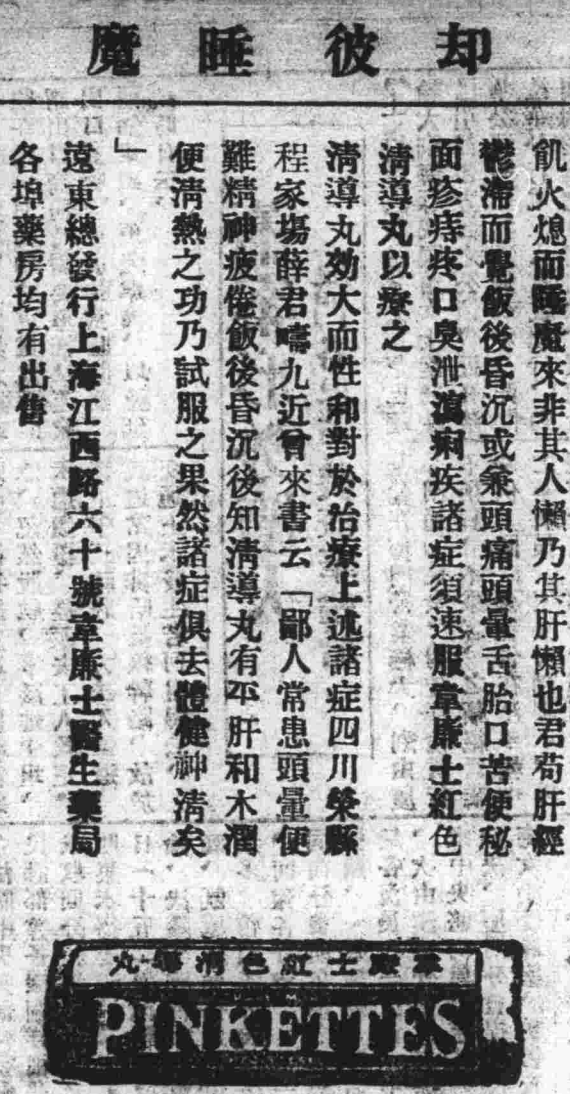 却彼睡魔
飢火熄而睡魔來非其人懶乃其肝懶也君苟肝經
鬱滯而覺飯後昏沉或兼頭痛頭暈舌胎口苦便秘
面疹痔疼口臭泄瀉痢疾諸症須速服韋廉士紅色
清導丸以療之
清導丸効大而性和對於治療上述諸症四川榮縣
程家塲薛君疇九近曾來書云「鄙人常患頭暈便
難精神疲倦飯後昏沉後知清導丸有平肝和木潤
便清熱之功乃試服之果然諸症俱去體健神清矣
」
遠東總發行上海江西路六十號韋廉士醫生藥局
各埠藥房均有出售
韋廉士紅色清導丸
PINKETTES